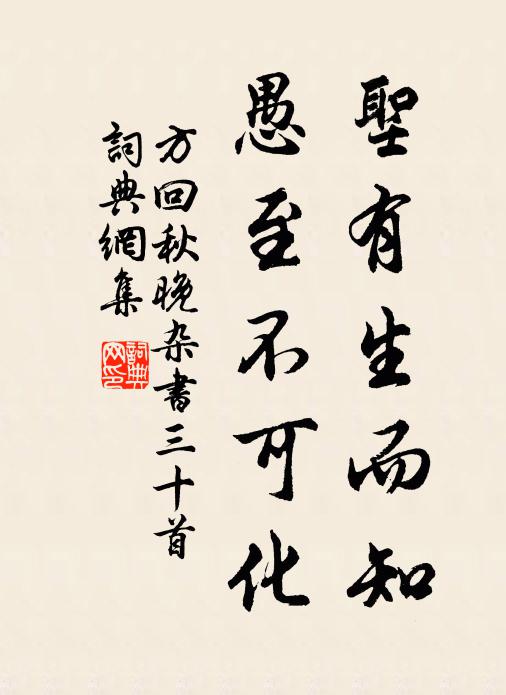 聖有生而知
愚至不可化
方回秋晚杂書三十首
詞典網集
詞典網印